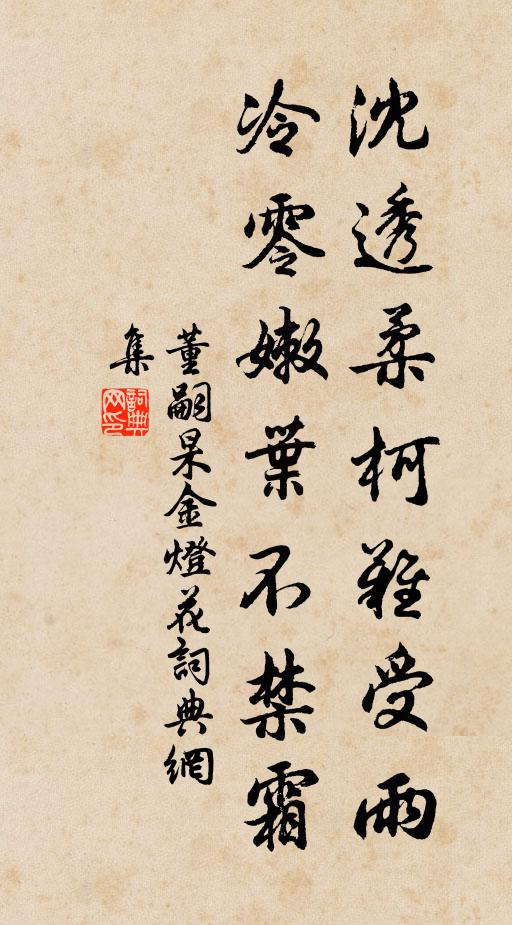 沈透柔柯難受雨
冷零嫩葉不禁霜
董嗣杲金燈花詞典網
集
詞典网印